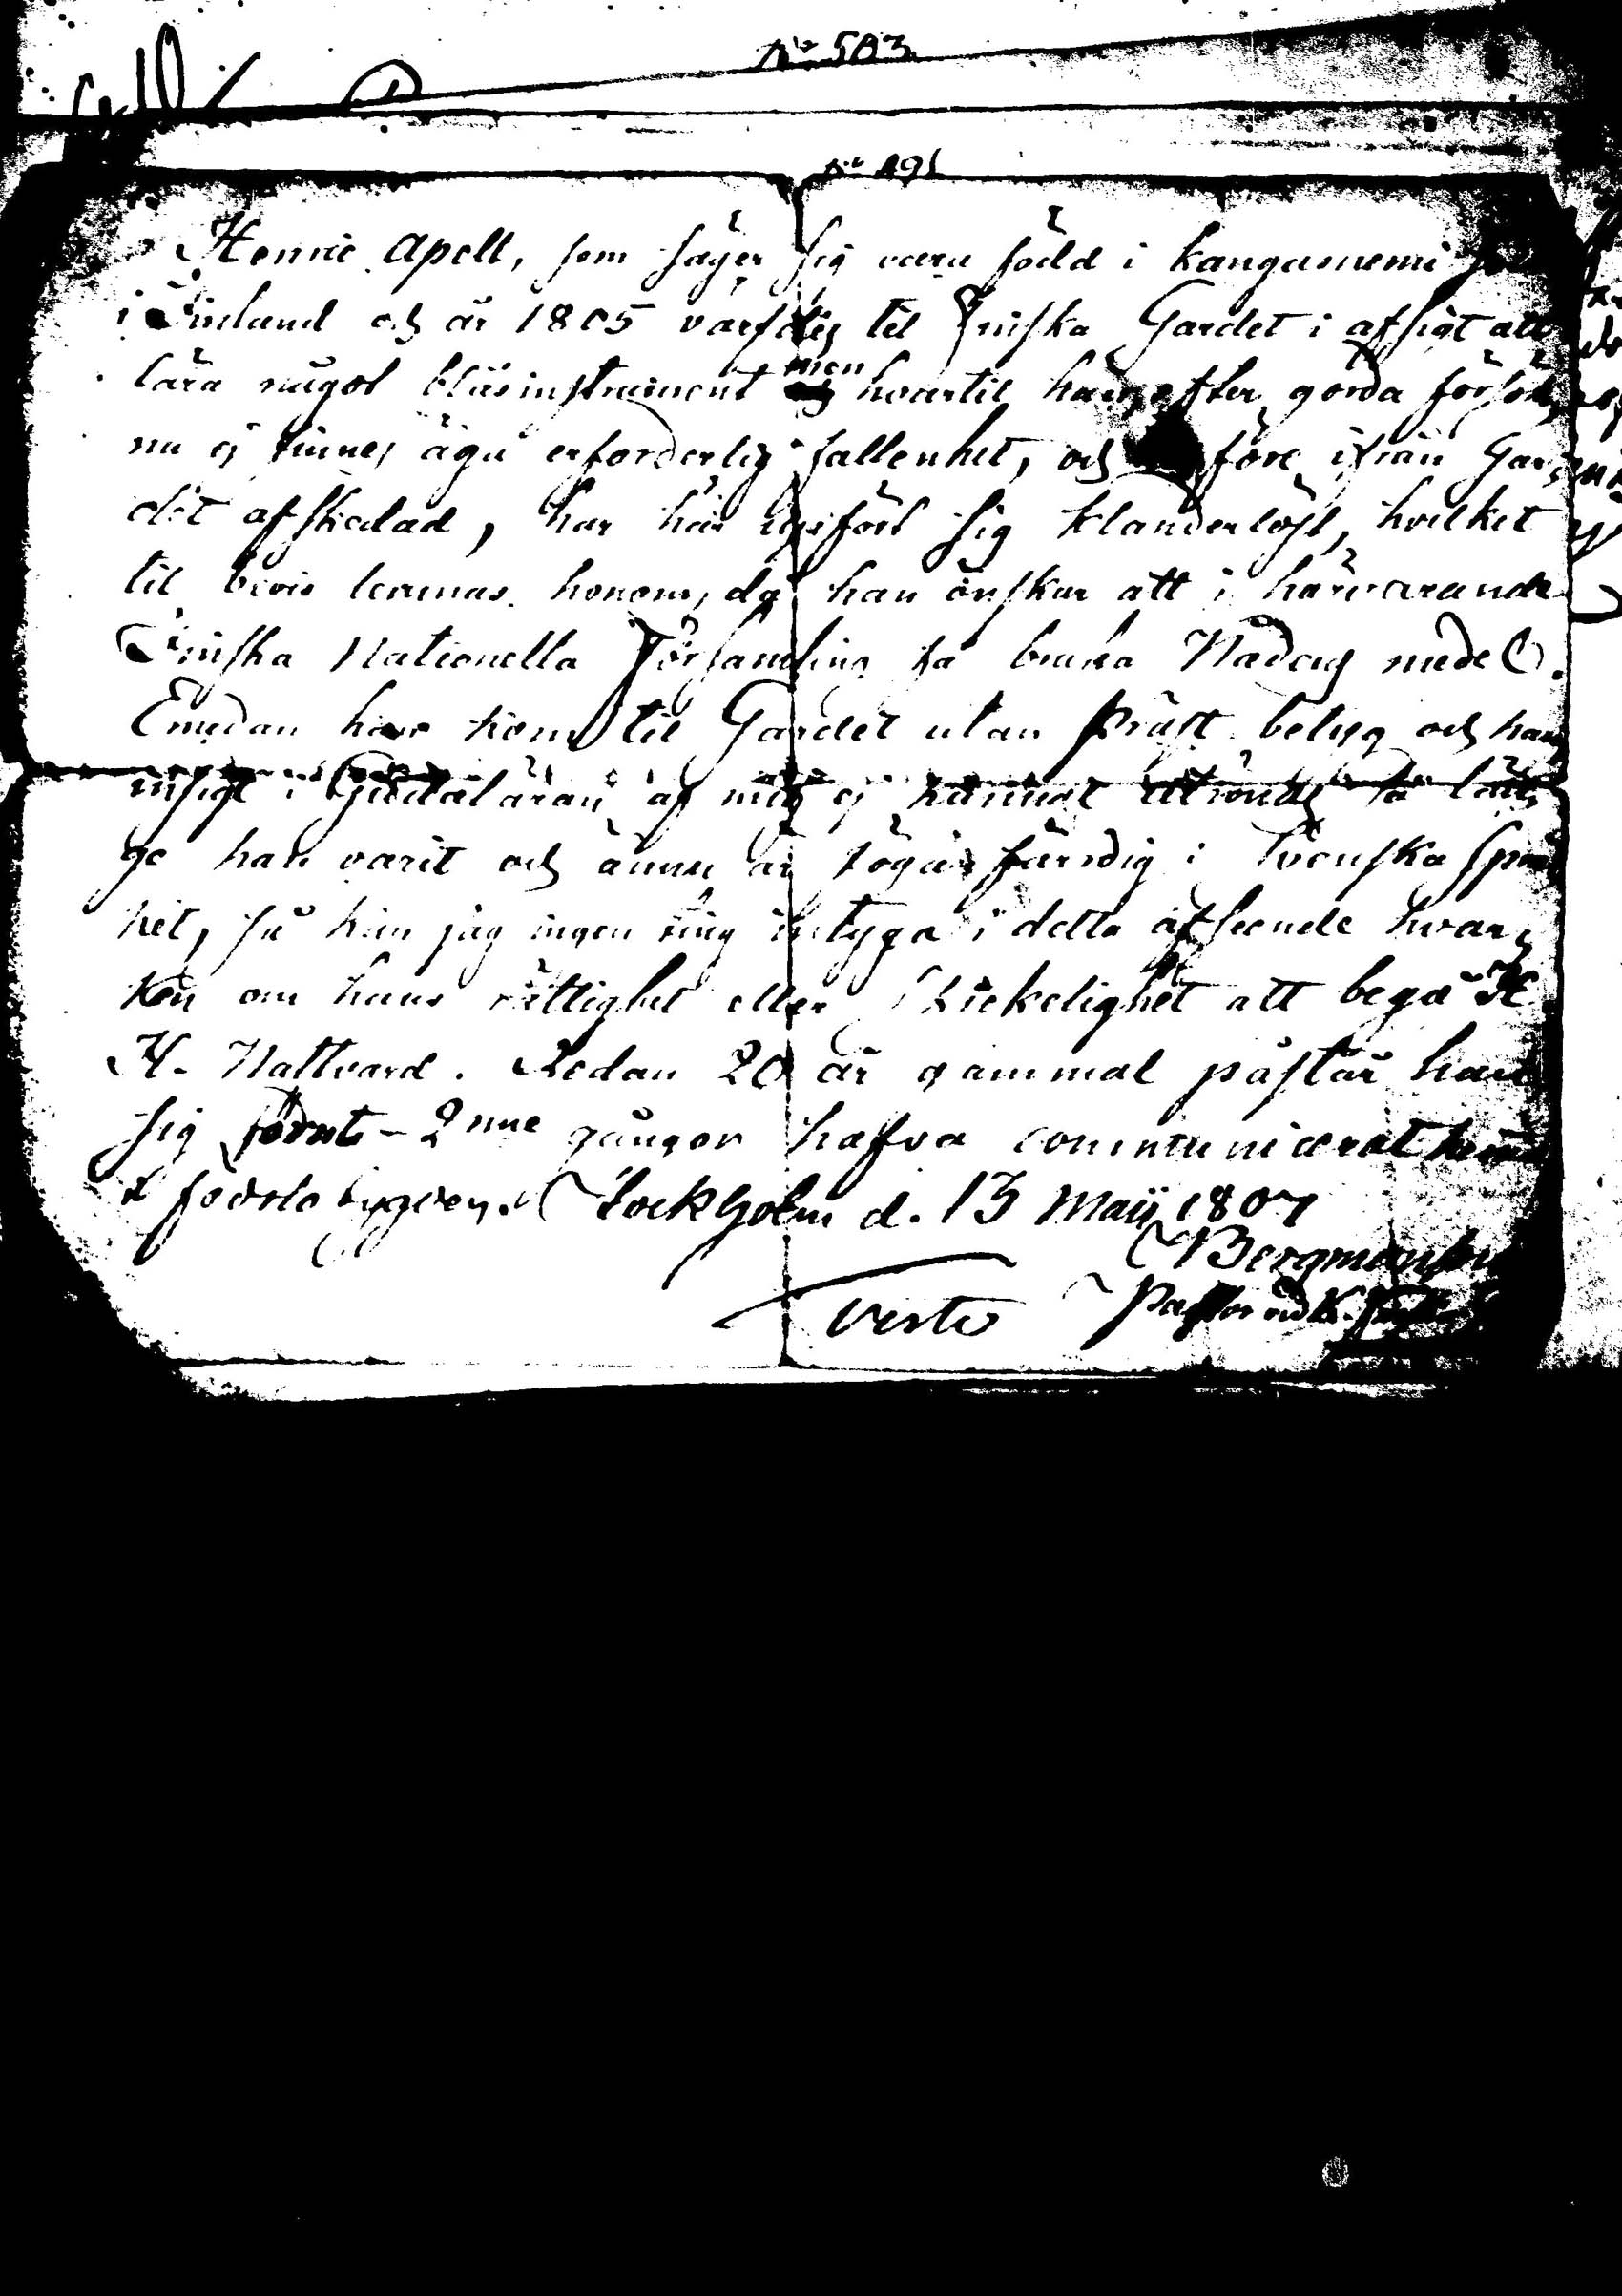 No 503
No 491
Henric Apell, som säger sig vara född i Kangasniemi
i Finland och år 1805 värfdes til Finska Gardet i afsigt att
lära något blåsinstrument men hvartil han, efter gorda försök,
nu ej finnes äga erforderlig fallenhet, och före ifrån Gar,
det afskedad, har här upfört sig klanderlöst, hvilket
til bevis lemnas honom, då han önskar att i härvarande
Finska Nationella Församling få bruka Nådens medel.
Emedan han kom til Gardet utan Präst betyg och hans
insigt i Gudaläran af mig ej kunnat utrönas så län,
ge han varit och ännu är högst färdig i Svenska språ
ket, så kan jag ingen ting intyga i detta afseende hvar,
ken om hans rättighet eller Skickelighet att begå H.
H. Nattvard. Redan 20 år gammal påstår han
sig förut 2nne gånger hafva communicerat
i födslobygden. Stockholm d. 13 Maij 1807
Bergmansson
verte Pastor vid K.